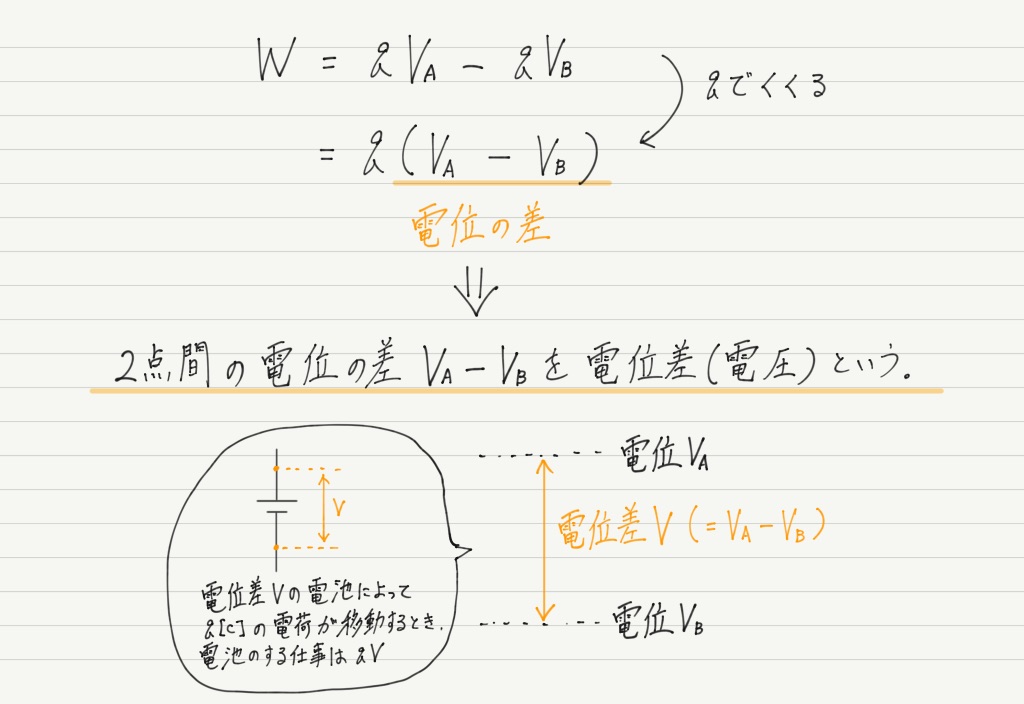 W = qV_A - qV_B
qでくくる
= q(V_A - V_B)
電位の差
⇓
2点間の電位の差 V_A - V_B を電位差(電圧)という.
電位 V_A
V
電位差 V (= V_A - V_B)
電位差 V の電池によって
q[C]の電荷が移動するとき,
電池のする仕事は qV
電位 V_B